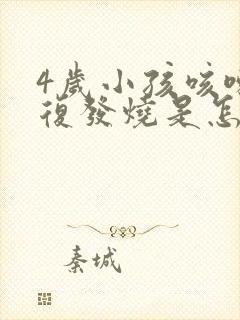 4歲小孩咳
復發燒是怎
秦城